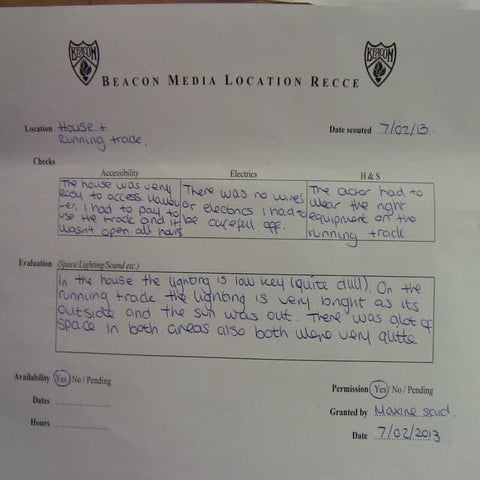 BEACON BEACON
BEACON MEDIA LOCATION RECCE
Location House +
Running track.
Date scouted 7/02/13.
Checks
Accessibility
The house was very
easy to access. Howev
-er, I had to pay to
use the track and it
wasnt open all hours
Electrics
There was no wires
or electonics I had to
be carefull off.
H & S
The actor had to
wear the right
equipment on the
running track
Evaluation (Space/Lighting/Sound etc.)
In the house the lighting is low key (quite dull). On the
running track the lighting is very bright as its
outside and the sun was out. There was alot of
space in both areas also both were very quite
Availability Yes / No / Pending
Dates
Hours
Permission Yes / No / Pending
Granted by Maxine
Date 7/02/2013